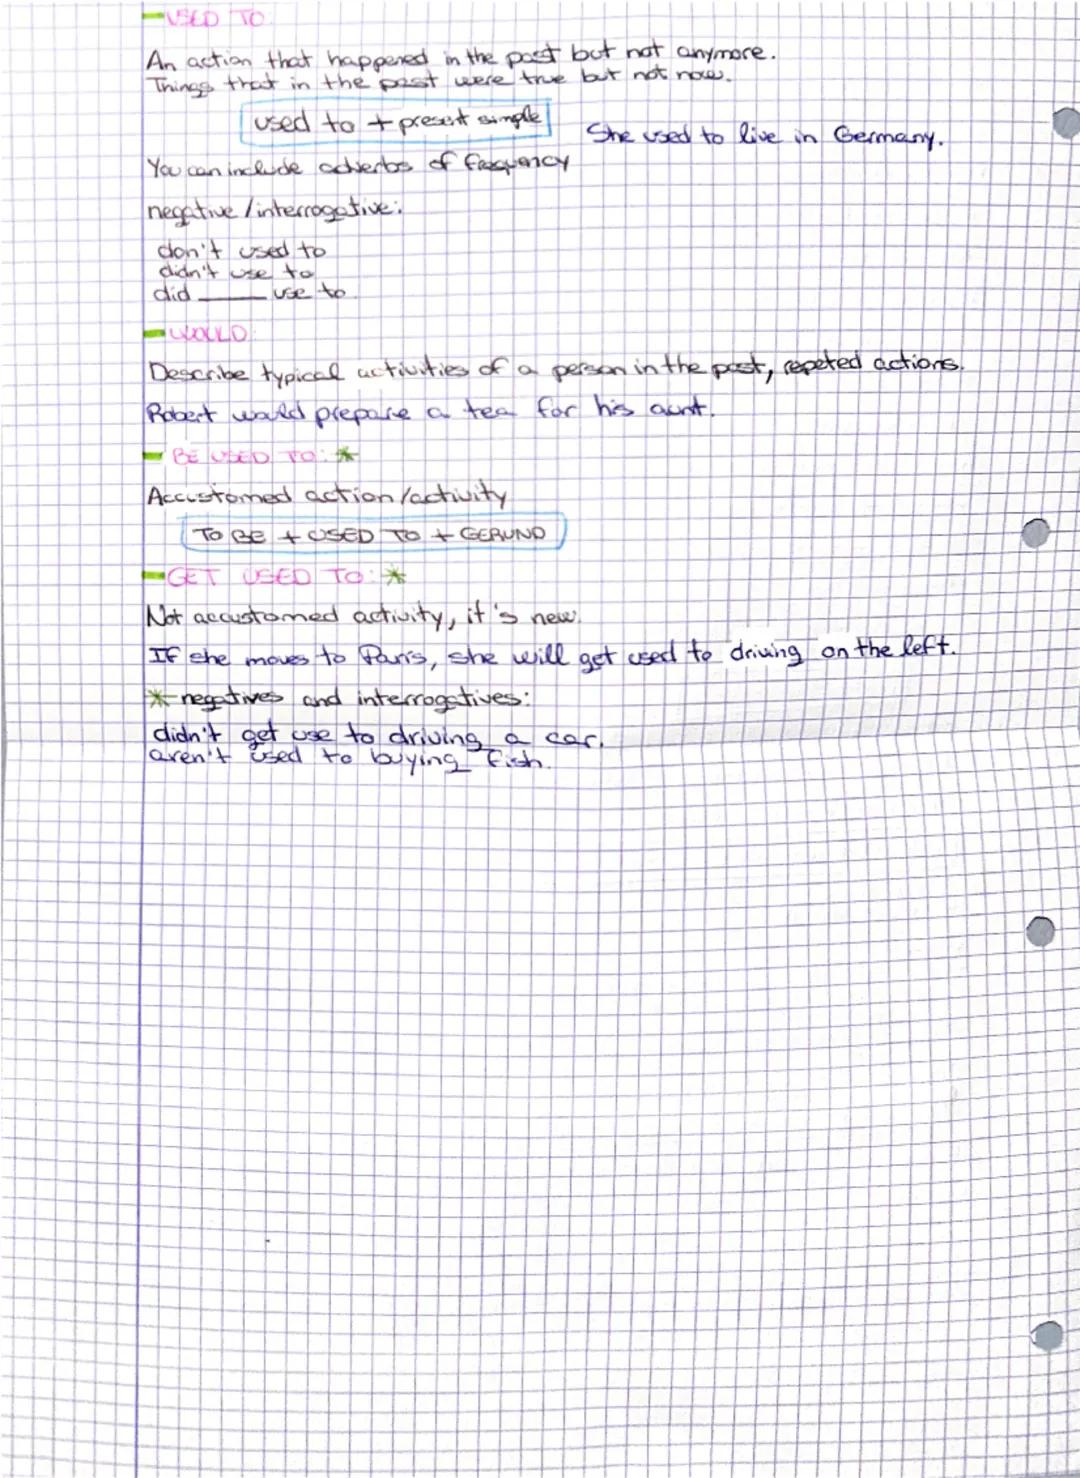 USED TO
An action that happened in the past but not anymore.
Things that in the past were true but not now.
used to + present simple
She used to live in Germany.
You can include adverbs of frequency
negative/interrogative:
don't used to
didn't use to
did ____ use to
WOULD:
Describe typical activities of a person in the past, repeted actions.
Robert would prepare a tea for his aunt.
BE USED TO: *
Accustomed action/activity
TO BE + USED TO + GERUND
GET USED TO: *
Not accustomed activity, it's new.
If she moves to Paris, she will get used to driving on the left.
* negatives and interrogatives:
didn't get use to driving a car.
aren't used to buying fish.